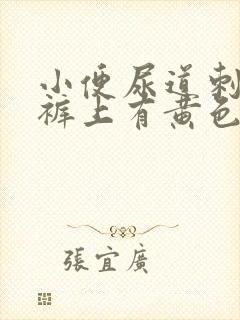 小便尿道刺
裤上有黄色
張宜廣